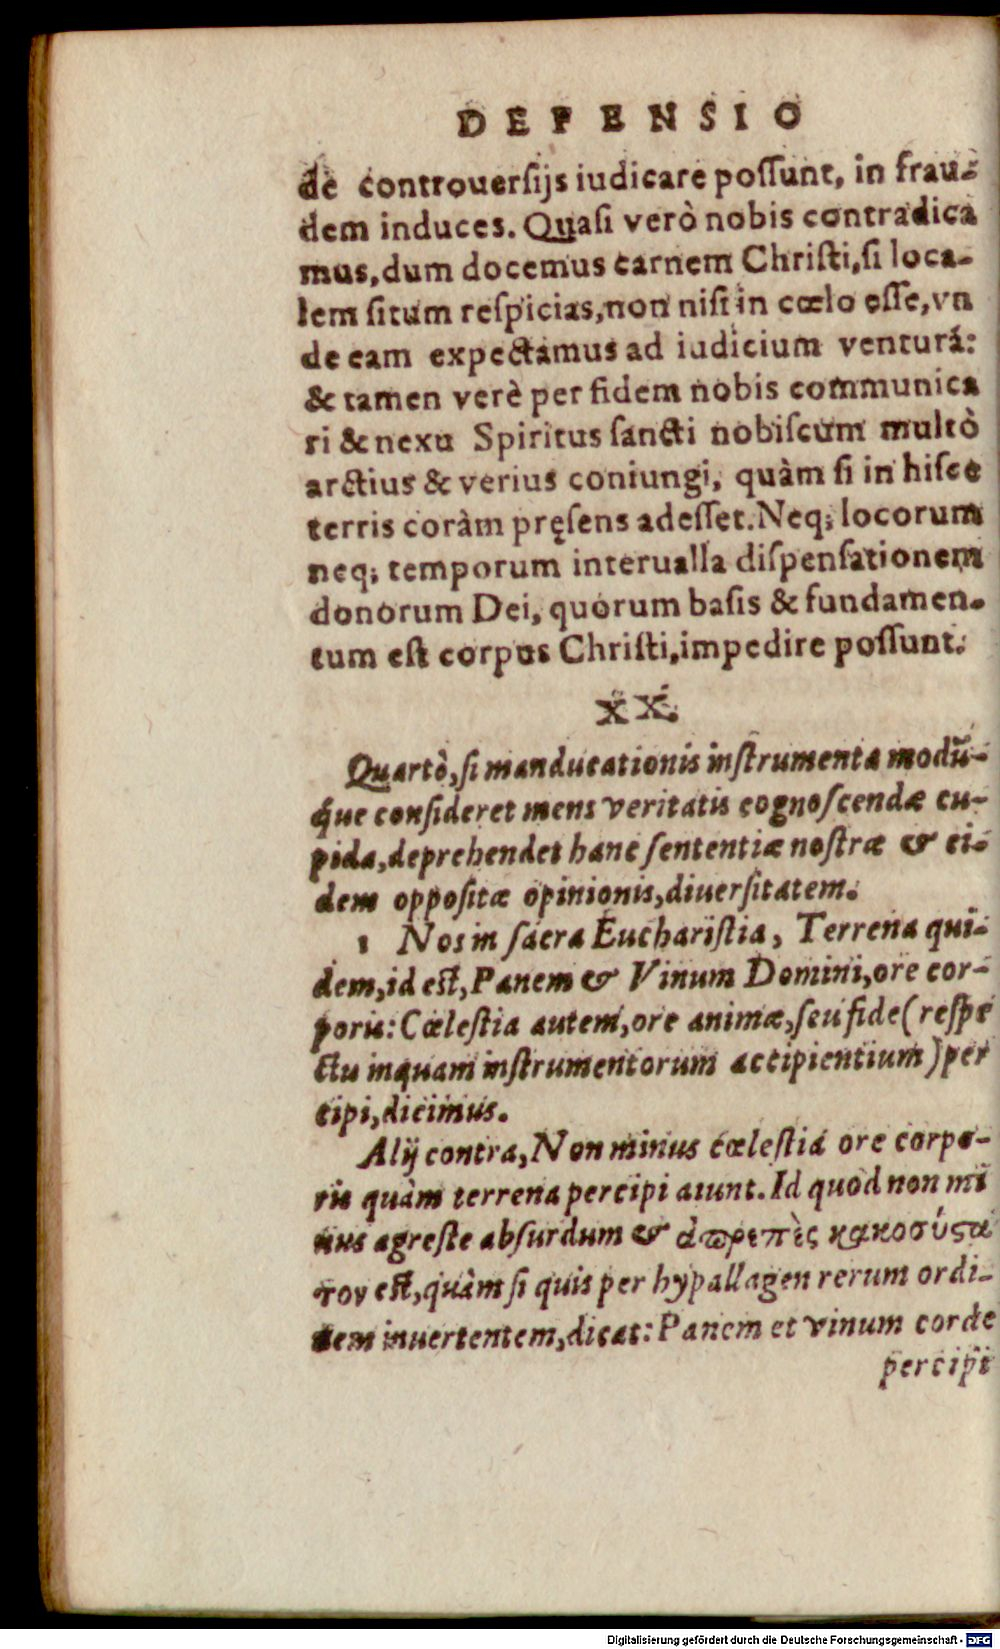 DEFENSIO
de controuerſijs iudicare poſſunt, in frau-
dem induces. Quaſi verò nobis contradica
mus, dum docemus carnem Chriſti, ſi loca-
lem ſitum reſpicias, non niſi in cœlo eſſe, vn
de eam expectamus ad iudicium venturá:
& tamen verè per fidem nobis communica
ri & nexu Spiritus ſancti nobiſcum multò
arctius & verius coniungi, quàm ſi in hiſce
terris coràm pręſens adeſſet. Neq; locorum
neq; temporum interualla diſpenſationem
donorum Dei, quorum baſis & fundamen-
tum eſt corpus Chriſti, impedire poſſunt.
XX.
Quartò, ſi manducationis inſtrumenta modū-
que conſideret mens veritatis cognoſcendæ cu-
pida, deprehendet hanc ſententiæ noſtræ & ei-
dem oppoſitæ opinionis, diuerſitatem.
1 Nos in ſacra Euchariſtia, Terrena qui-
dem, id eſt, Panem & Vinum Domini, ore cor-
poris: Cœleſtia autem, ore animæ, ſeu fide (reſpe
ctu inquam inſtrumentorum accipientium) per
cipi, dicimus.
Alij contra, Non minus cœleſtia ore corpo-
ris quàm terrena percipi aiunt. Id quod non mi
nus agreſte abſurdum & ἀπρεπὲς κακοσύςα
τον eſt, quàm ſi quis per hypallagen rerum ordi-
nem inuertentem, dicat: Panem et vinum corde
percipi
Digitalisierung gefördert durch die Deutsche Forschungsgemeinschaft - DFG